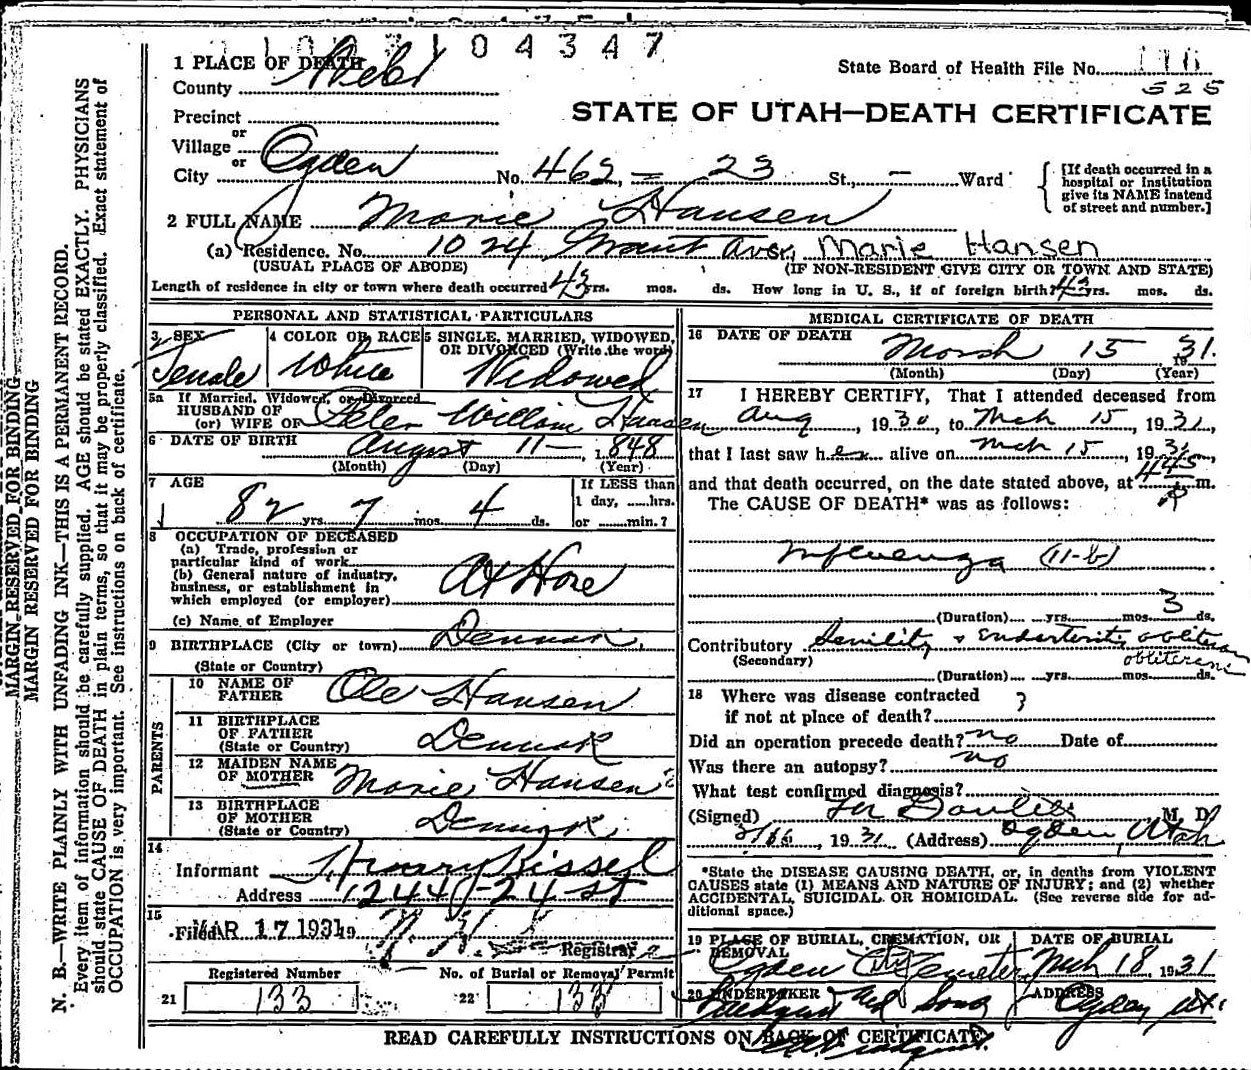 1003104347
1 PLACE OF DEATH
County Weber
State Board of Health File No. 116
525
STATE OF UTAH—DEATH CERTIFICATE
Precinct
or
Village
or
City Ogden No. 462 – 23 St., – Ward
[If death occurred in a hospital or institution give its NAME instead of street and number.]
2 FULL NAME Marie Hansen
(a) Residence. No. 1024 Grant Ave, Marie Hansen
(USUAL PLACE OF ABODE) (IF NON-RESIDENT GIVE CITY OR TOWN AND STATE)
Length of residence in city or town where death occurred 43 yrs. mos. ds. How long in U. S., if of foreign birth? 43 yrs. mos. ds.
PERSONAL AND STATISTICAL PARTICULARS
3 SEX Female
4 COLOR OR RACE White
5 SINGLE, MARRIED, WIDOWED, OR DIVORCED (Write the word) Widowed
5a If Married, Widowed, or Divorced
HUSBAND OF
(or) WIFE OF Peter William Hansen
6 DATE OF BIRTH August 11–, 1848
(Month) (Day) (Year)
7 AGE 82 yrs. 7 mos. 4 ds.
If LESS than 1 day, ......hrs. or ......min.?
8 OCCUPATION OF DECEASED
(a) Trade, profession or particular kind of work
(b) General nature of industry, business, or establishment in which employed (or employer) At Home
(c) Name of Employer
9 BIRTHPLACE (City or town) Denmark
(State or Country)
PARENTS
10 NAME OF FATHER Ole Hansen
11 BIRTHPLACE OF FATHER (State or Country) Denmark
12 MAIDEN NAME OF MOTHER Marie Hansen ?
13 BIRTHPLACE OF MOTHER (State or Country) Denmark
14
Informant Henry Kissel
Address 1244–24 St
15
Filed MAR 17 1931 19
Registrar
Registered Number
21 133
No. of Burial or Removal Permit
22 133
MEDICAL CERTIFICATE OF DEATH
16 DATE OF DEATH March 15 1931.
(Month) (Day) (Year)
17 I HEREBY CERTIFY, That I attended deceased from
Aug, 1930, to Mch 15, 1931,
that I last saw her alive on Mch 15, 1931,
and that death occurred, on the date stated above, at 445 P m.
The CAUSE OF DEATH* was as follows:
Influenza (11-b)
(Duration) yrs. mos. 3 ds.
Contributory Senility & Endarteritis obliterans
obliterans
(Secondary)
(Duration) yrs. mos. ds.
18 Where was disease contracted
if not at place of death? ?
Did an operation precede death? no Date of
Was there an autopsy? no
What test confirmed diagnosis?
(Signed) M. D.
3/16, 1931 (Address) Ogden, Utah
*State the DISEASE CAUSING DEATH, or, in deaths from VIOLENT
CAUSES state (1) MEANS AND NATURE OF INJURY; and (2) whether
ACCIDENTAL, SUICIDAL OR HOMICIDAL. (See reverse side for ad-
ditional space.)
19 PLACE OF BURIAL, CREMATION, OR REMOVAL
Ogden City Cemetery
DATE OF BURIAL
Mch 18 1931
20 UNDERTAKER
and Sons
ADDRESS
Ogden Ut.
READ CAREFULLY INSTRUCTIONS ON BACK OF CERTIFICATE.
MARGIN RESERVED FOR BINDING
MARGIN RESERVED FOR BINDING
N. B.—WRITE PLAINLY WITH UNFADING INK—THIS IS A PERMANENT RECORD.
Every item of information should be carefully supplied. AGE should be stated EXACTLY. PHYSICIANS
should state CAUSE OF DEATH in plain terms, so that it may be properly classified. Exact statement of
OCCUPATION is very important. See instructions on back of certificate.